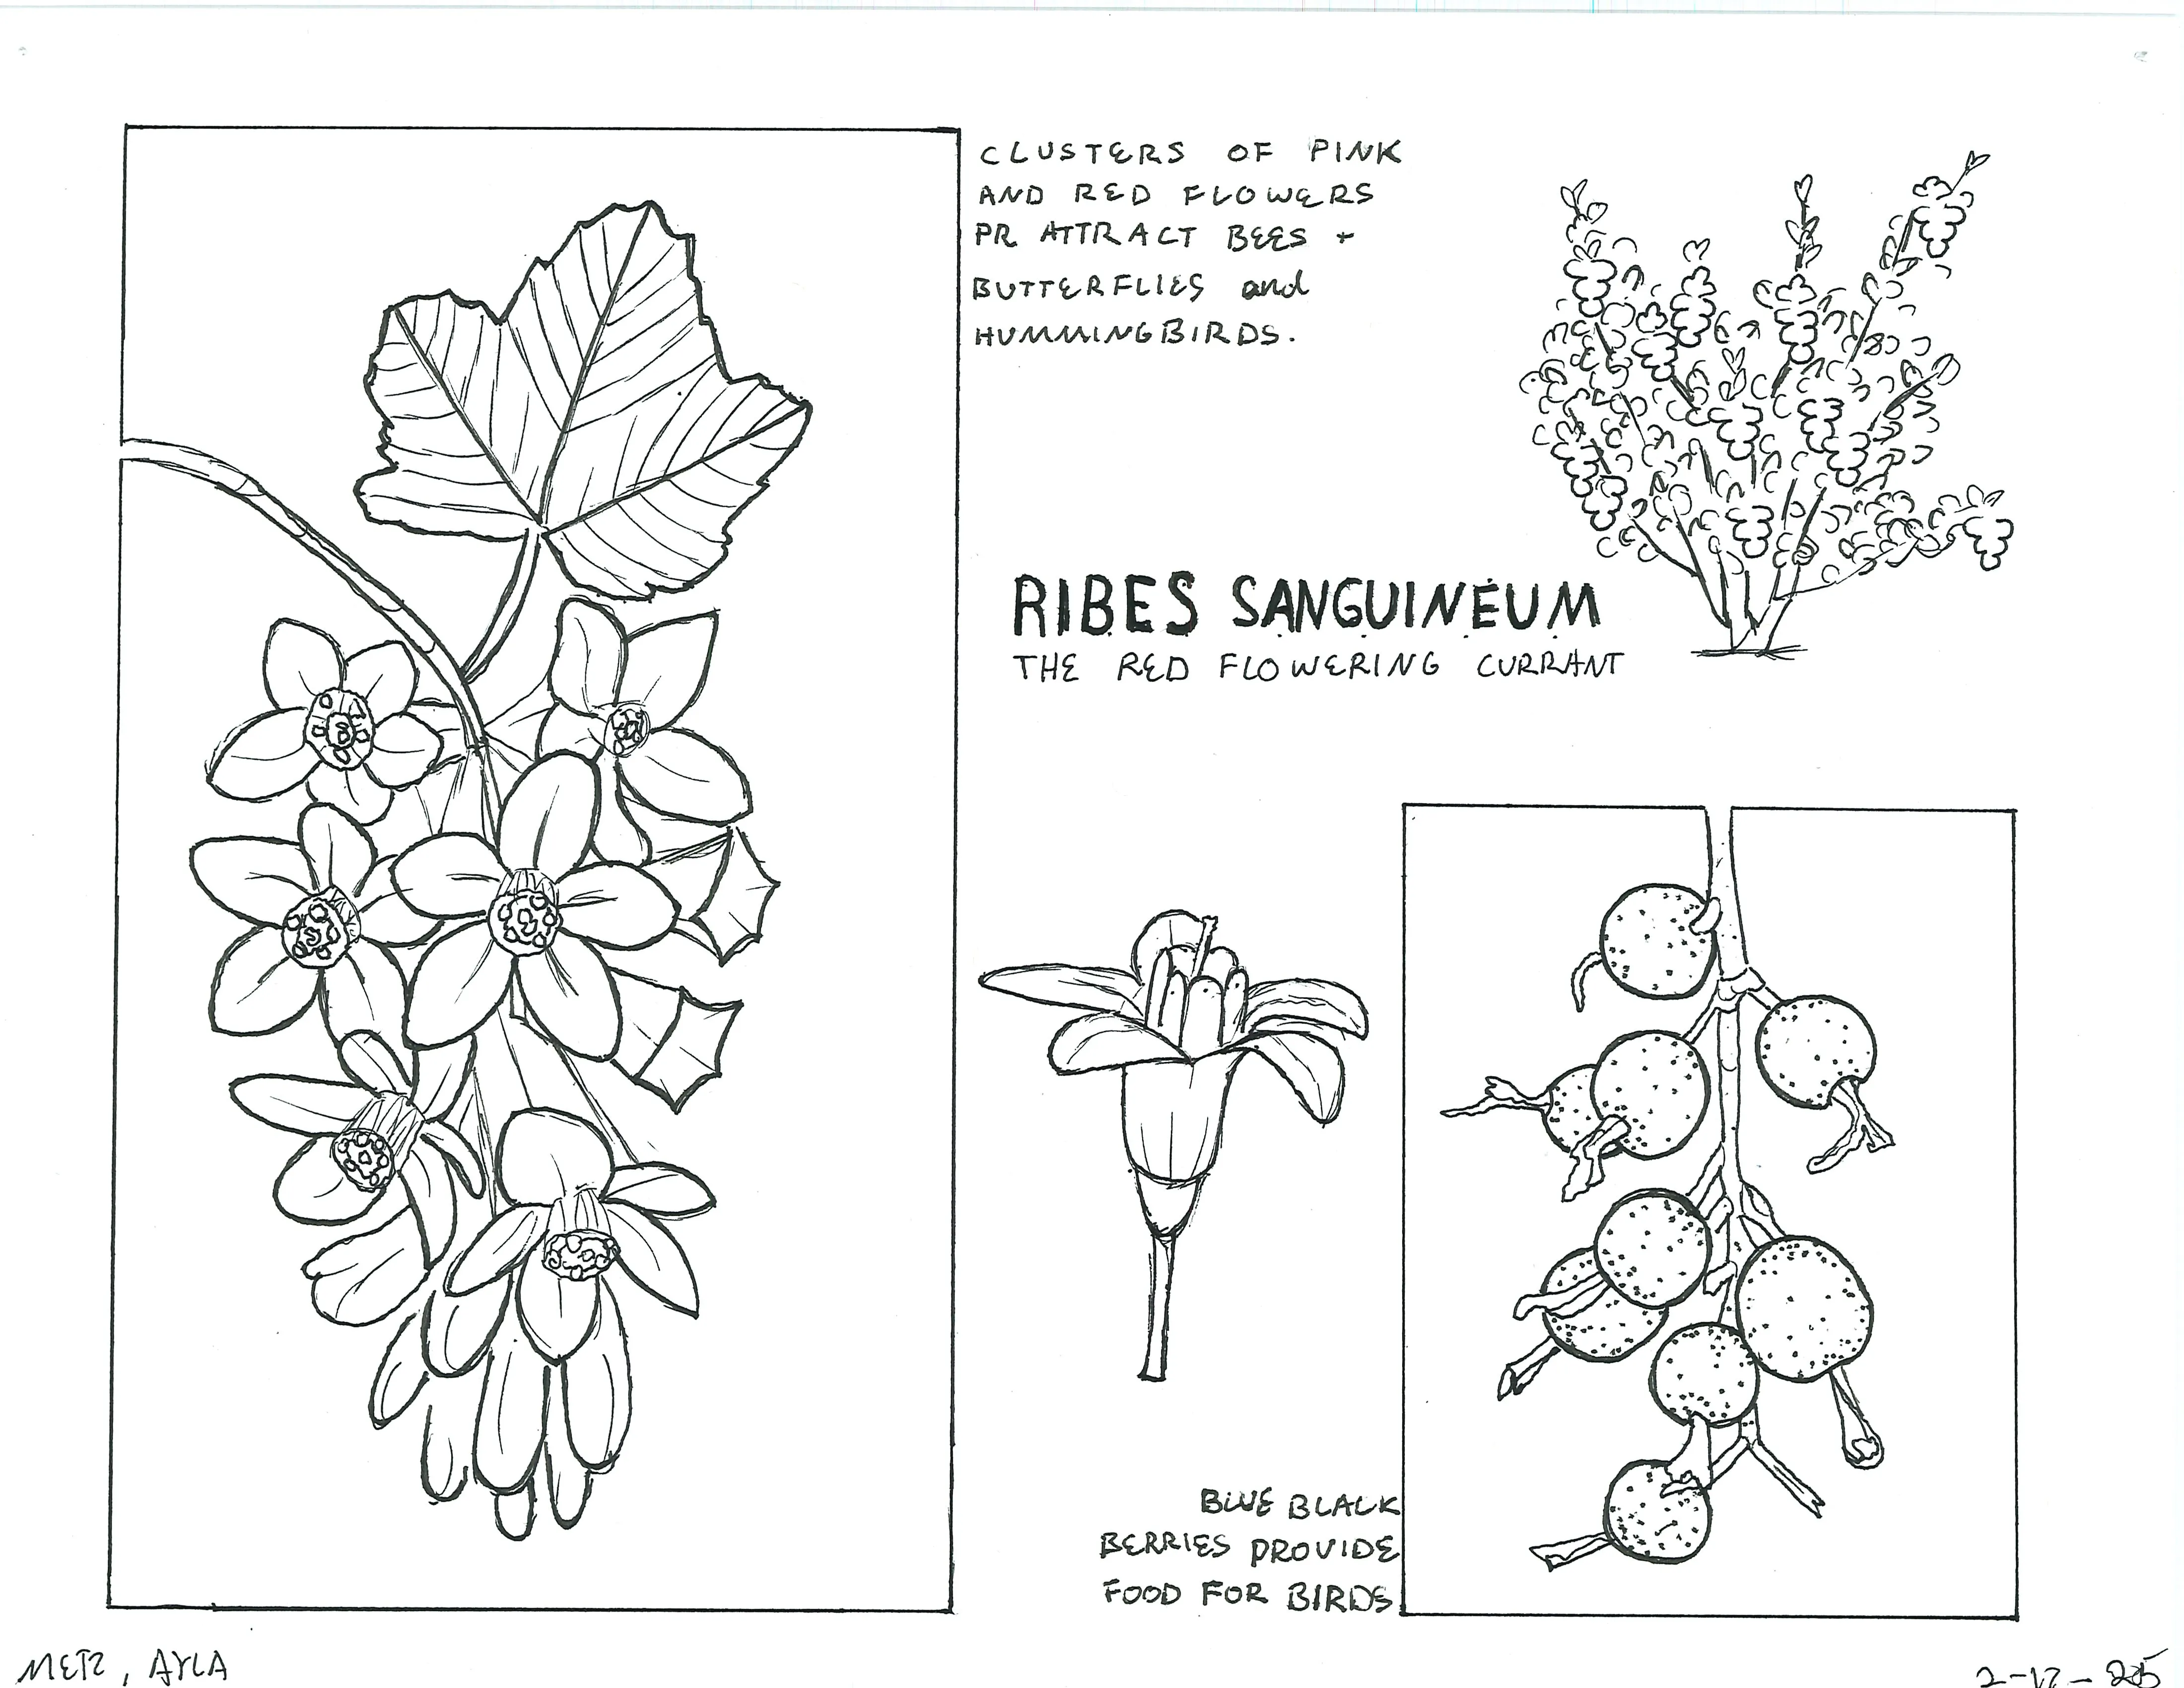 CLUSTERS OF PINK
AND RED FLOWERS
PR ATTRACT BEES +
BUTTERFLIES and
HUMMINGBIRDS.
RIBES SANGUINEUM
THE RED FLOWERING CURRANT
BLUE BLACK
BERRIES PROVIDE
FOOD FOR BIRDS.
METZ, AYLA